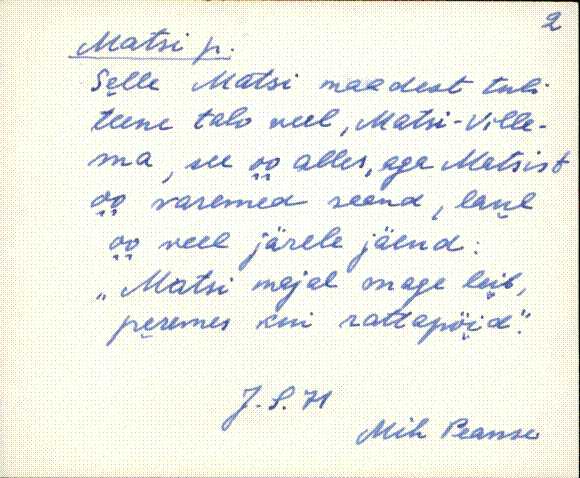 2
Matsi p.
Selle Matsi maadest tuli
teene talo veel, Matsi-Ville-
ma, see oo alles, aga Matsist
oo varemed seend, laul
oo veel järele jäend:
"Matsi majal mage leib,
peremes kui rattapöid".
J. S. H
Mih Peanse